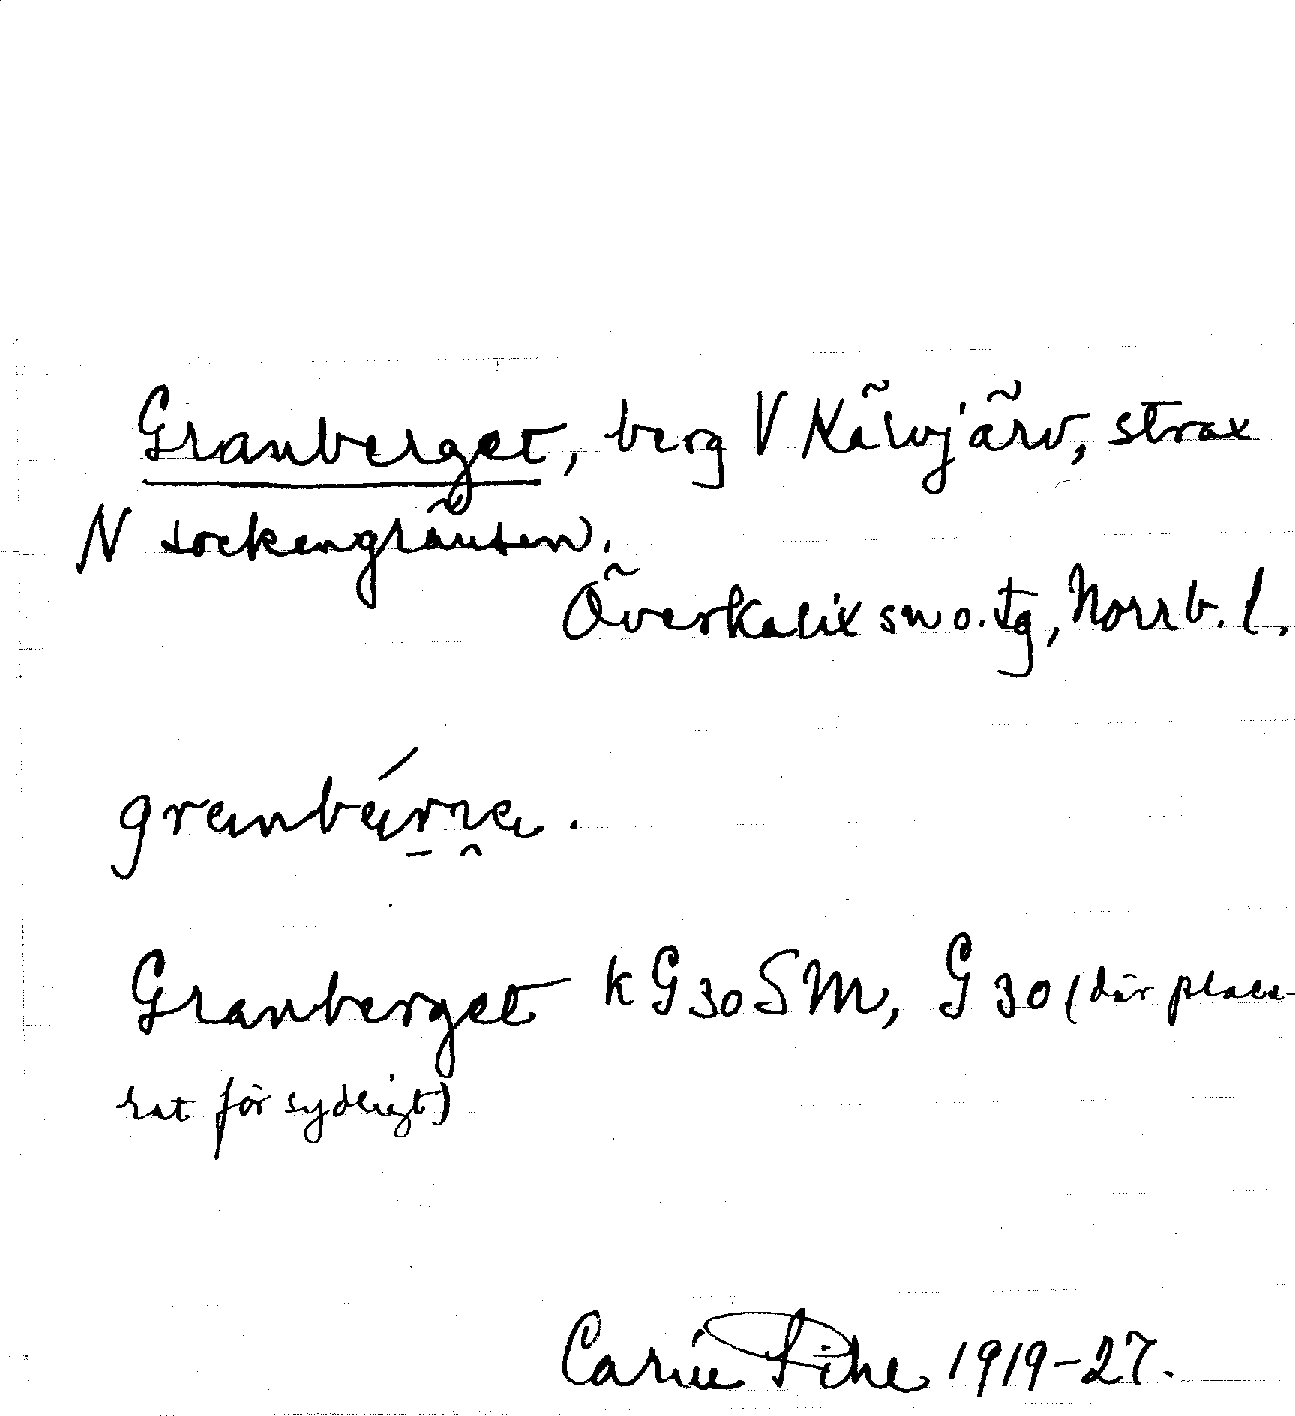 Granberget, berg V Kälvjärv, strax
N sockengränsen.
Överkalix sn o. tg, Norrb. l.
Granberget k G30SM, G30 (där place-
rat för sydligt)
Carin Pihl 1919-27.